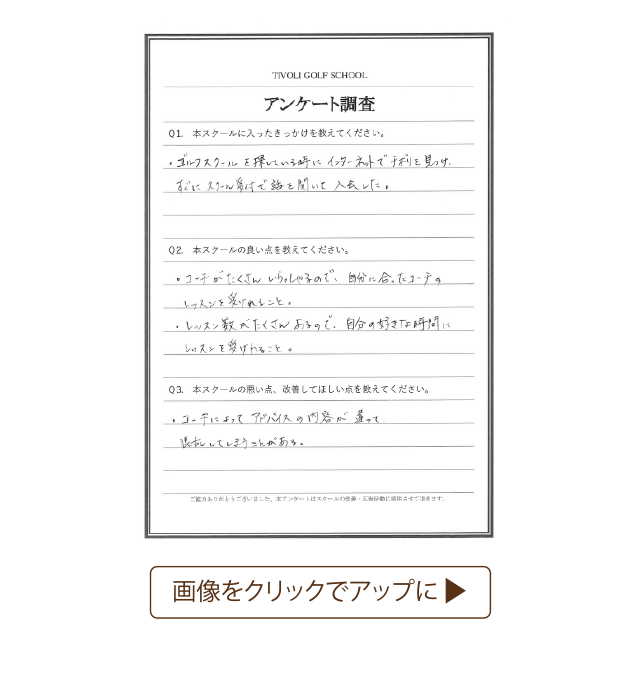 TIVOLI GOLF SCHOOL
アンケート調査
Q1. 本スクールに入ったきっかけを教えてください。
・ゴルフスクールを探している時にインターネットでチボリを見つけ、
すぐにスクール受付で話を聞いて入会した。
Q2. 本スクールの良い点を教えてください。
・コーチがたくさんいらっしゃるので、自分に合ったコーチの
レッスンを受けれること。
・レッスン数がたくさんあるので、自分の好きな時間に
レッスンを受けれること。
Q3. 本スクールの悪い点、改善してほしい点を教えてください。
・コーチによってアドバイスの内容が違って
混乱してしまうことがある。
ご協力ありがとうございました。本アンケートはスクールの改善・広告活動に使用させて頂きます。
画像をクリックでアップに ▶